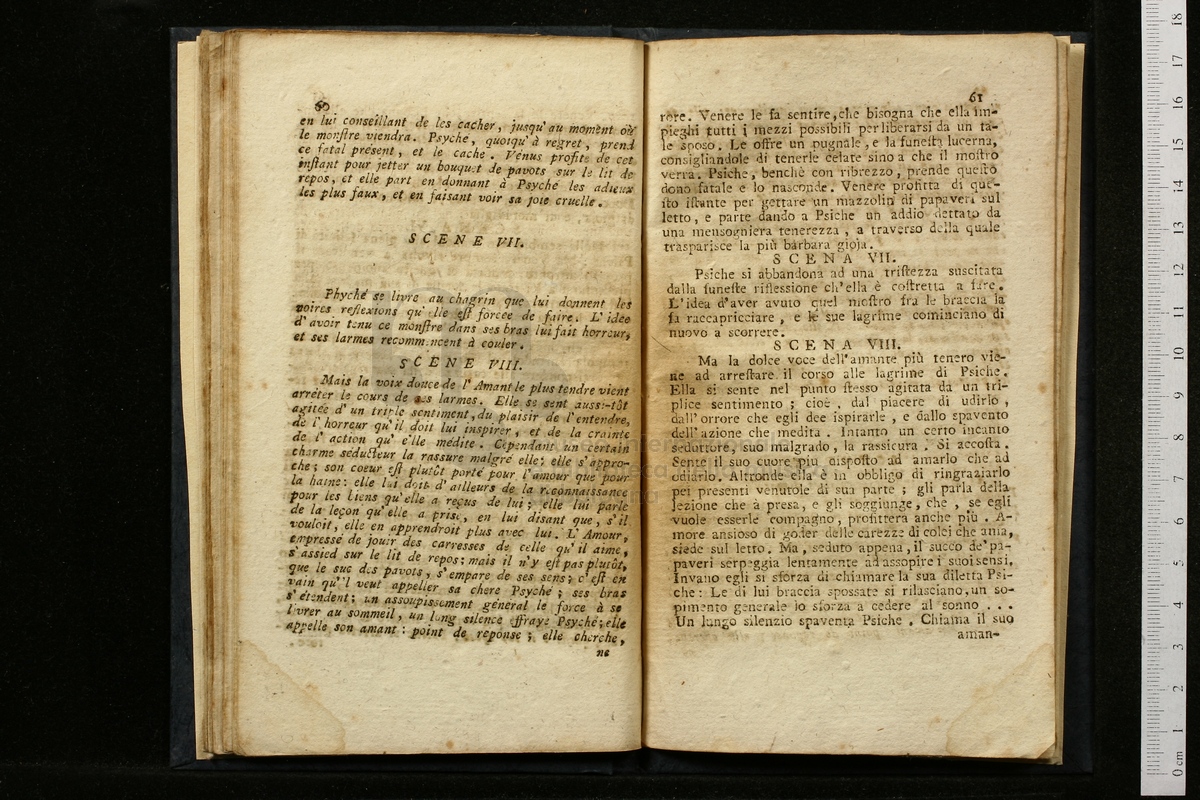 60
en lui conseillant de les cacher, jusqu'au moment où
le monſtre viendra. Psyché, quoiqu'à regret, prend
ce fatal présent, et le cache. Vénus profite de cet
inſtant pour jetter un bouquet de pavots sur le lit de
repos, et elle part en donnant à Psyché les adieux
les plus faux, et en faisant voir sa joie cruelle.
SCENE VII.
Phyché se livre au chagrin que lui donnent les
voires reflexions qu'elle eſt forcée de faire. L'idée
d'avoir tenu ce monſtre dans ses bras lui fait horreur,
et ses larmes recommencent à couler.
SCENE VIII.
Mais la voix douce de l'Amant le plus tendre vient
arrêter le cours de ses larmes. Elle se sent aussi-tôt
agitée d'un triple sentiment, du plaisir de l'entendre,
de l'horreur qu'il doit lui inspirer, et de la crainte
de l'action qu'elle médite. Cependant un certain
charme séducteur la rassure malgré elle: elle s'appro-
che; son coeur eſt plutôt porté pour l'amour que pour
la haine: elle lui doit d'ailleurs de la reconnaissance
pour les liens qu'elle a reçus de lui; elle lui parle
de la leçon qu'elle a prise, en lui disant que, s'il
vouloit, elle en apprendroit plus avec lui. L'Amour,
empressé de jouir des carresses de celle qu'il aime,
s'assied sur le lit de repos; mais il n'y eſt pas plutôt,
que le suc des pavots, s'empare de ses sens; c'eſt en
vain qu'il veut appeller sa chere Psyché; ses bras
s'étendent; un assoupissement général le force à se
livrer au sommeil, un long silence effraye Psyché; elle
appelle son amant: point de reponse; elle cherche,
ne
61
rore. Venere le fa sentire, che bisogna che ella im-
pieghi tutti i mezzi possibili per liberarsi da un ta-
le sposo. Le offre un pugnale, e la funeſta lucerna,
consigliandole di tenerle celate sino a che il moſtro
verra. Psiche, benchè con ribrezzo, prende queſto
dono fatale e lo nasconde. Venere profitta di que-
ſto iſtante per gettare un mazzolin di papaveri sul
letto, e parte dando a Psiche un addio dettato da
una mensogniera tenerezza, a traverso della quale
trasparisce la più barbara gioja.
SCENA VII.
Psiche si abbandona ad una triſtezza suscitata
dalla funeſte riflessione ch'ella è coſtretta a fare.
L'idea d'aver avuto quel moſtro fra le braccia la
fa raccapricciare, e le sue lagrime cominciano di
nuovo a scorrere.
SCENA VIII.
Ma la dolce voce dell'amante più tenero vie-
ne ad arreſtare il corso alle lagrime di Psiche.
Ella si sente nel punto ſtesso agitata da un tri-
plice sentimento; cioè, dal piacere di udirlo,
dall'orrore che egli dee ispirarle, e dallo spavento
dell'azione che medita. Intanto un certo incanto
seduttore, suo malgrado, la rassicura. Si accoſta.
Sente il suo cuore piu disposto ad amarlo che ad
odiarlo. Altronde ella è in obbligo di ringraziarlo
pei presenti venutole di sua parte; gli parla della
lezione che à presa, e gli soggiunge, che, se egli
vuole esserle compagno, profitterà anche più. A-
more ansioso di goder delle carezze di colei che ama,
siede sul letto. Ma, seduto appena, il succo de' pa-
paveri serpeggia lentamente ad assopire i suoi sensi.
Invano egli si sforza di chiamare la sua diletta Psi-
che: Le di lui braccia spossate si rilasciano, un so-
pimento generale lo sforza a cedere al sonno ...
Un lungo silenzio spaventa Psiche. Chiama il suo
aman-